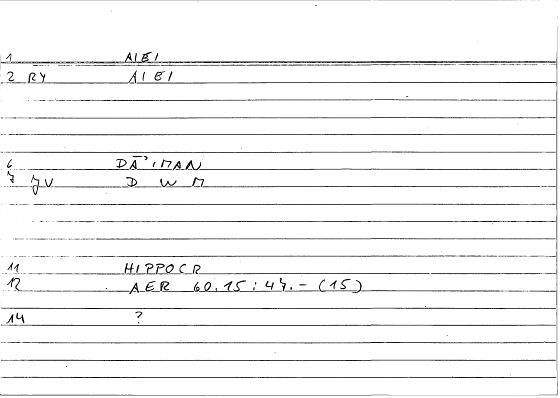 1 AIEI
2 RY AIEI
6 DĀʾIMAN
7 JV D W M
11 HIPPOCR
12 AER 60.15:44.-(15)
14 ?